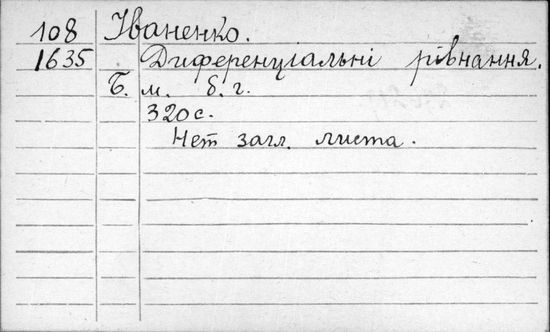 108 Іваненко.
1635 Диференціальні рівнання.
Б. м. б. г.
320 с.
Нет загл. листа.